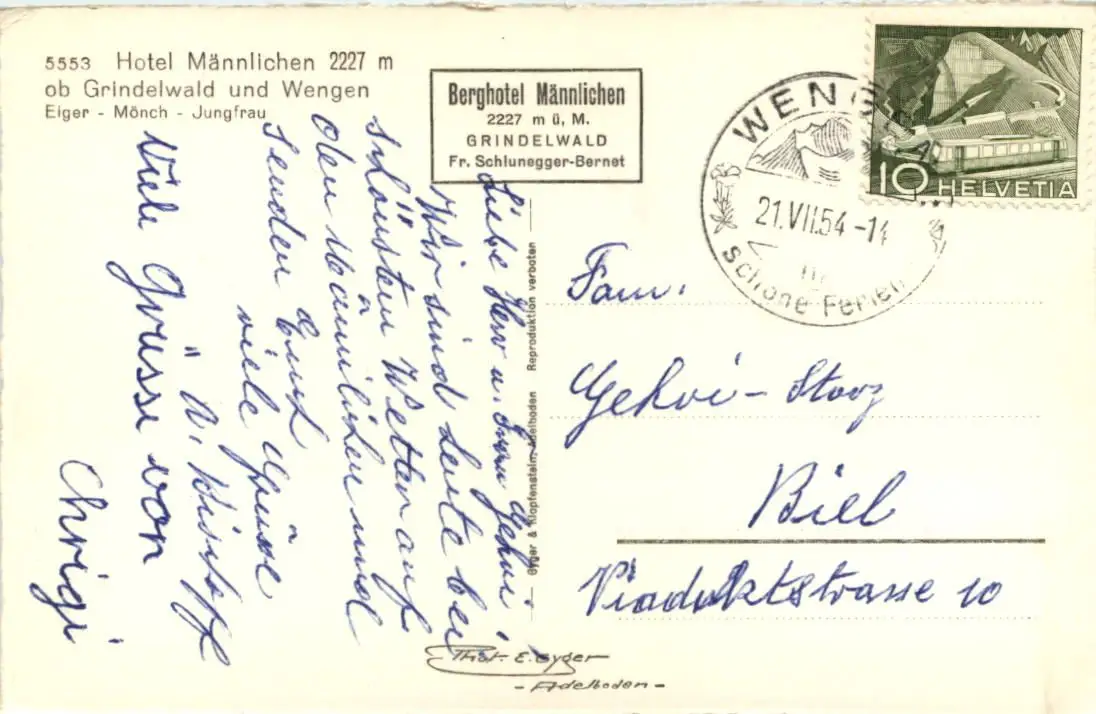 5553 Hotel Männlichen 2227 m
ob Grindelwald und Wengen
Eiger - Mönch - Jungfrau
Berghotel Männlichen
2227 m ü. M.
GRINDELWALD
Fr. Schlunegger-Bernet
WENGEN
21.VII.54-14
Schöne Ferien
10 HELVETIA
Liebe Herr u. Frau Gehri
Wir sind heute bei
schönsten Wetter auf
den Männlichen und
senden Euch
viele Grüsse
Viele Grüsse von
Chrigi
Gyger & Klopfenstein, Adelboden Reproduktion verboten
Fam.
Gehri - Storz
Biel
Viaduktstrasse 10
Phot. E. Gyger
- Adelboden -